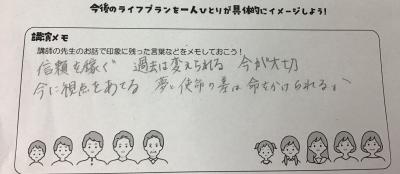 今後のライフプランを一人ひとりが具体的にイメージしよう!
講演メモ
講師の先生のお話で印象に残った言葉などをメモしておこう!
信頼を稼ぐ 過去は変えられる 今が大切
今に視点をあてる 夢と使命の差は命をかけられる